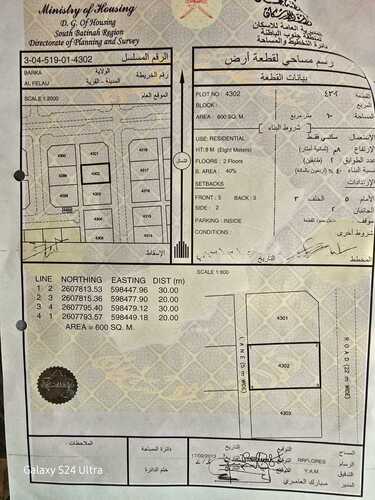 Ministry of Housing
D. G. Of Housing
South Batinah Region
Directorate of Planning and Survey
المديرية العامة للاسكان
بمنطقة جنوب الباطنة
دائرة التخطيط والمساحة
3-04-519-01-4302 الرقم المسلسل
رسم مساحي لقطعة أرض
BARKA الولاية
AL FELAIJ المدينة - القرية رقم الخريطة
بيانات القطعة
SCALE 1:2000 الموقع العام
PLOT NO : 4302 القطعة ٤٣٠٢
BLOCK : المربع
AREA : 600 SQ. M. المساحة ٦٠٠
شروط البناء
USE: RESIDENTIAL الاستعمال : سكني فقط
HT:8 M. (Eight Meters) الارتفاع ٨م (ثمانية أمتار)
FLOORS : 2 Floors عدد الطوابق ٢ (طابقين)
B. AREA : 40% نسبة البناء ٤٠٪ (أربعون بالمائة)
SETBACKS الارتدادات
FRONT : 5 BACK : 3 الخلف ٣ الأمام ٥
SIDE : 2 الجانبان ٢
PARKING : INSIDE موقف
OTHER CONDITIONS شروط أخرى
4300
4301
4299
4302
4303
4316
4317
4318
4319
الشمال
الإسقاط
المخطط
SCALE 1:800
LINE NORTHING EASTING DIST (m)
1 2 2607813.53 598447.96 30.00
2 3 2607815.36 598477.90 20.00
3 4 2607795.40 598479.12 30.00
4 1 2607793.57 598449.18 20.00
AREA = 600 SQ. M.
4301
4302
4303
LANE (5 m WIDE)
ROAD (22 m WIDE)
الملاحظات
دائرة المساحة
ختم الدائرة
17/02/2013
التوقيع RRFLORES المساح
التوقيع Y.A.M الرسام
التوقيع التدقيق
مبارك العامري
Galaxy S24 Ultra